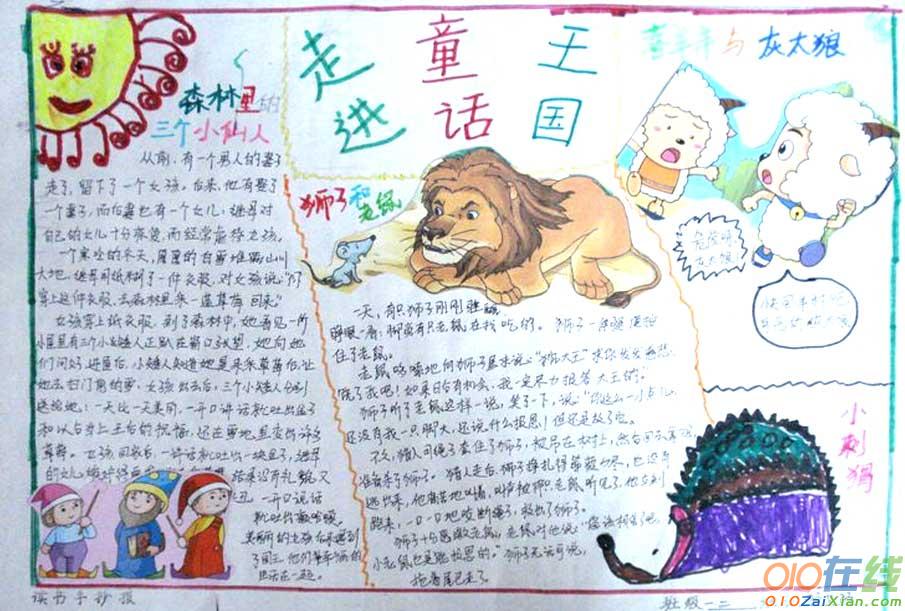 走进
童话
王国
森林里的
三个小仙人
从前,有一个男人的妻子
走了,留下了一个女孩,后来,他有娶了
一个妻子,而后妻也有一个女儿,继母对
自己的女儿十分疼爱,而经常虐待女孩。
一个寒冷的冬天,厚厚的白雪堆满山川
大地,继母用纸糊了一件衣服,对女孩说:“你
穿上这件衣服,去森林里采一蓝草莓回来。”
女孩穿上纸衣服,到了森林中,她看见一所
小屋里有三个小矮人正趴在窗口张望,她向他
们问好进屋后,小矮人知道她是来采草莓后,让
她去扫门角的雪,女孩出去后,三个小矮人分别
送给她:一天比一天美丽,一开口讲话就吐出金子
和以后当上王后的祝福,还在雪地里变出许多
草莓。女孩回家后,一讲话就吐出一块金子,继母
一开口说话
美丽的女孩后来遇到
了国王,他们
生活在一起。
狮子和
老鼠
一天,有只狮子刚刚睡醒,
睁眼一看,脚旁有只老鼠在找吃的。狮子一伸腿便拍
住了老鼠。
老鼠哆嗦地向狮子哀求说:“狮大王!求你发发慈悲,
饶了我吧!如果日后有机会,我一定尽力报答大王的。”
狮子听了老鼠这样一说,笑了一下,说:“你这么一小点儿,
还没有我一只脚大,还说什么报恩!但还是放了它。
不久,猎人用绳子套住了狮子,
准备杀了狮子。猎人走后狮子挣扎得筋疲力尽,也没有
逃出来,他痛苦地叫着,叫声被那只老鼠听见了,他立刻
跑来,一口一口地咬断绳子,救出了狮子。
狮子十分感激老鼠,老鼠对他说:“您该相信了吧,
小老鼠也是能报恩的。”狮子无话可说,
拖着尾巴走了。
喜羊羊与灰太狼
危险呀!
灰太狼!
小刺猬
读书手抄报
班级
OIO在线
010ZaiXian.com